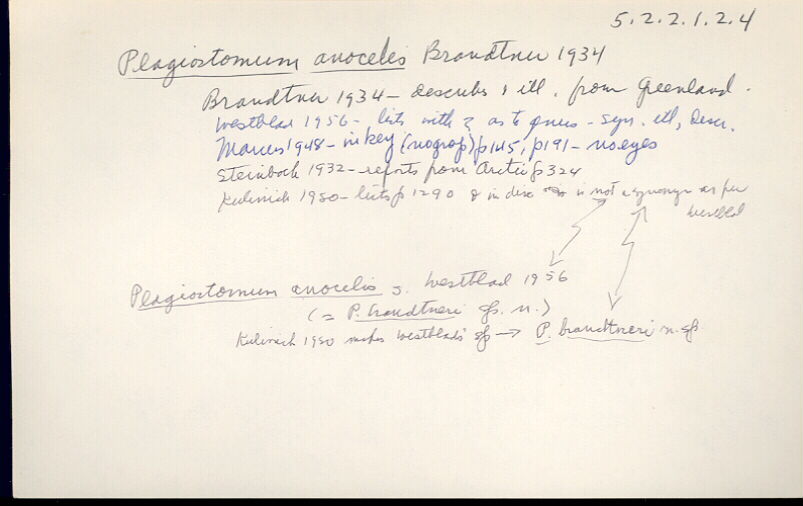 5.2.2.1.2.4
Plagiostomum anocelis Brandtner 1934
Brandtner 1934 - describes & ill. from Greenland.
Westblad 1956 - lists with ? as to genus - syn. ill, descr.
Marcus 1948 - in key (nogrof) p145; p191 - no eyes
Steinböck 1932 - reports from Arctic p 324
Kulinich 1980 - lists p 1290 & in disc is not a synonym as per
Westblad
Plagiostomum anocelis s. Westblad 1956
(= P. brandtneri sp. n.)
Kulinich 1980 makes Westblad's sp → P. brandtneri n. sp.